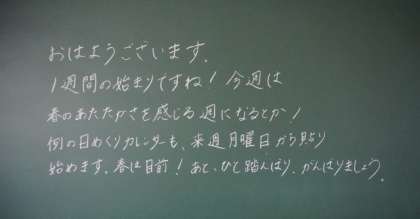 おはようございます.
1週間の始まりですね! 今週は
春のあたたかさを感じる週になるとか!
例の日めくりカレンダーも、来週月曜日から貼り
始めます. 春は目前! あと、ひと踏んばり、がんばりましょう.